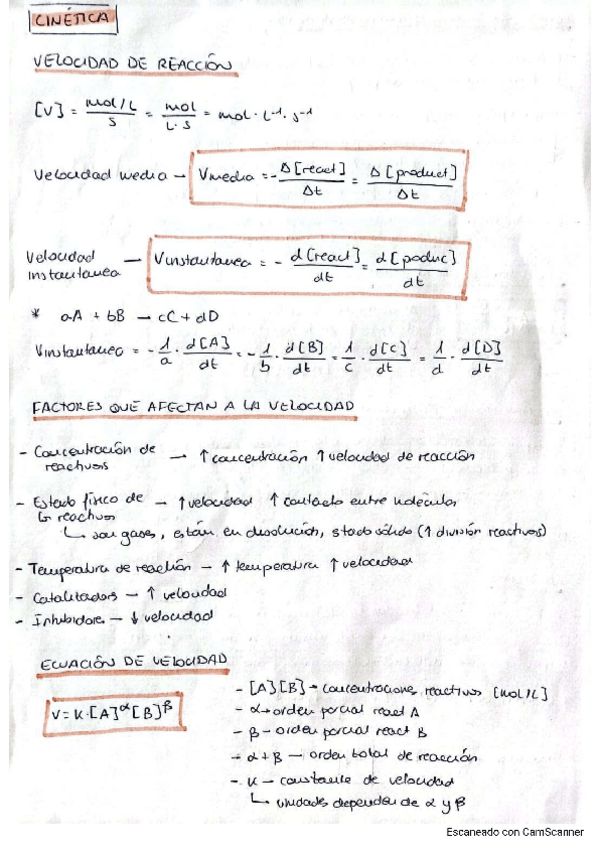 CINÉTICA
VELOCIDAD DE REACCIÓN
[V] = mol/L / s = mol / L·s = mol · L⁻¹ · s⁻¹
Velocidad media → Vmedia = - Δ[react] / Δt = Δ[product] / Δt
Velocidad instantanea — Vinstantanea = - d[react] / dt = d[produc] / dt
* aA + bB → cC + dD
Vinstantaneo = - 1/a · d[A]/dt = - 1/b · d[B]/dt = 1/c · d[C]/dt = 1/d · d[D]/dt
FACTORES QUE AFECTAN A LA VELOCIDAD
- Concentración de reactivos → ↑ concentración ↑ velocidad de reacción
- Estado físico de → ↑ velocidad ↑ contacto entre moléculas
↳ reactivos
↳ son gases, están en disolución, stado sólido (↑ división reactivos)
- Temperatura de reacción → ↑ temperatura ↑ velocidad
- Catalizadors → ↑ velocidad
- Inhibidore → ↓ velocidad
ECUACIÓN DE VELOCIDAD
V = K·[A]^α [B]^β
- [A][B] → concentraciones reactivos [mol/L]
- α → orden parcial react A
- β - orden parcial react B
- α + β — orden total de reacción
- K — constante de velocidad
↳ unidades dependen de α y β
Escaneado con CamScanner